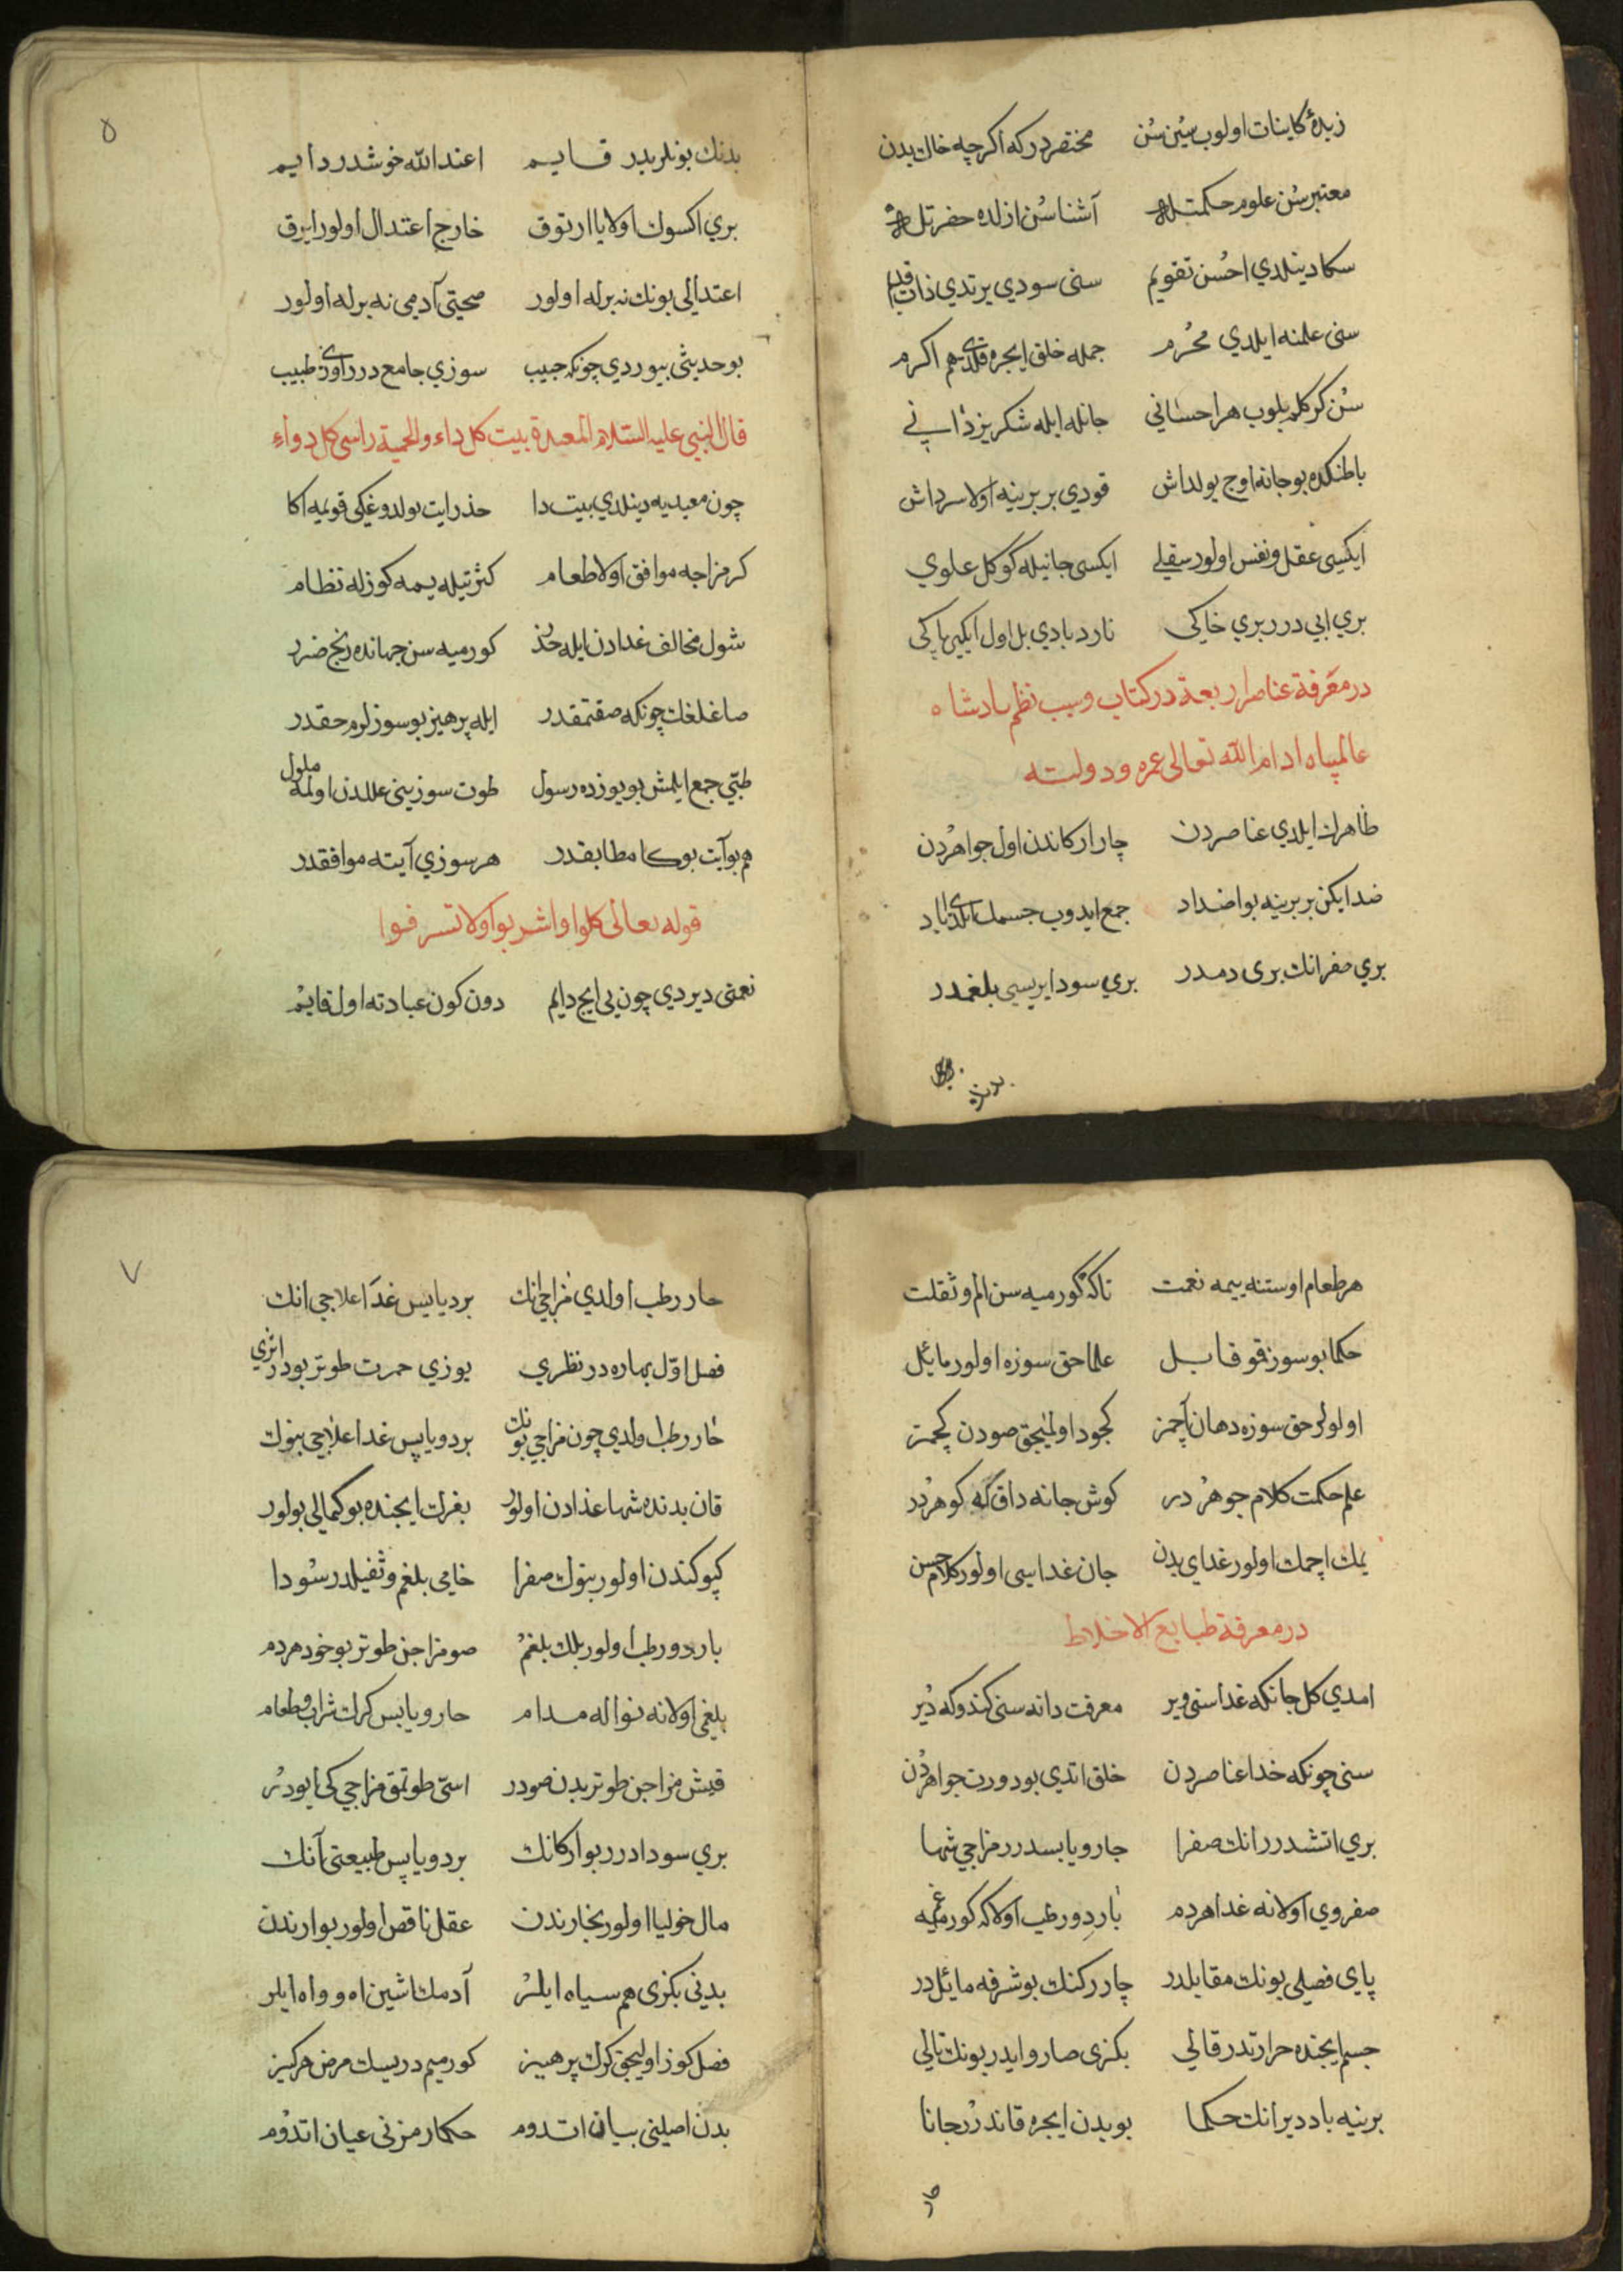 زبدۀ كاينات اولوب سين سن مختصر در كه اكرچه خاك بدن
معتبر سن علوم حكمتله آشنا سن ازلده حضرتله
سكا دينلدي احسن تقويم سنى سودي يرتدي ذات قديم
سنى علمنه ايلدي محرم جمله خلق ايچره قلدى هم اكرم
سن كركله بلوب هر احساني جانله ايله شكر يزداني
باطنكده بو جانه اوج يولداش قودي بر برينه اولا سرداش
ايكيسى عقل ونفس اولور سفلي ايكسى جانيله كوكل علوي
بري ابي در بري خاكى نار د بادي بل اول ايكى پاكى
در معرفة عناصر اربعة در كتاب وسبب نظم پادشاه
عالمپناه ادام الله تعالى عمره ودولته
ظاهرك ايلدي عناصردن چار اركاندن اول جواهردن
ضد ايكن بر برينه بو اضداد جمع ايدوب جسمك ايلدى آباد
بري صفرا انك برى دمدر بري سودا بريسى بلغمدر
بدنك
۵
بدنك بونلريدر قايم اعند الله خوشدر دايم
بري اكسوك اولا يا ارتوق خارج اعتدال اولور ايرق
اعتدالى بونك نه برله اولور صحيتى آدمى نه برله اولور
بو حديثى بيوردي چونكه حبيب سوزي جامع درر اوى طبيب
قال النبي عليه السلام المعدة بيت كل داء والحمية راس كل دواء
چون معيديه دينلدي بيت دا حذر ايت بولدوغيكى قويمه اكا
كر مزاجه موافق اولا طعام كثرتيله ييمه كوزله نظام
شول مخالف غدادن ايله حذر كورميه سن جهانده رنج ضرر
صاغلغك چونكه صقتمقدر ايله پرهيز بو سوزلرم حقدر
طبّي جمع ايلمش بو يوزده رسول طوت سوزينى عللدن اولمه ملول
هم بو آيت بوكا مطابقدر هر سوزي آيته موافقدر
قوله تعالى كلوا واشربوا ولا تسرفوا
نعمتى ديردي چون يي ايچ دايم دون كون عبادته اول قايم
هر طعام اوستنه ييمه نعمت تا كه كورميه سن الم وثقلت
حكما بو سوز قو قابل علما حق سوزه اولور مائل
اولولر حق سوزه دهان آچمز كجود اوليجق صودن كچمز
علم حكمت كلام جوهر در كوش جانه داق كه كوهر در
يمك اچمك اولور غداي بدن جان غداسى اولور كلام حسن
در معرفة طبايع الاخلاط
امدي كل جانكه غداسنى وير معرفت دانه سنى كندوكه دير
سنى چونكه خدا عناصردن خلق اتدي بو دورت جواهردن
بري اتشدر انك صفرا حار ويابسدر مزاجي شها
صفروي اولانه غدا هردم بارد ورطب اولا كه كورميه غم
ياى فصلى بونك مقابلدر چار ركنك بو شرفه مائلدر
جسم ايچنده حرارتدر قالي بكزى صارو ايدر بونك تالي
برينه باد دير انك حكما بو بدن ايچره قاندر جانا
حار
۷
حار رطب اولدي مزاجي انك برد يابس غدا علاجى انك
فصل اول بهاره در نظري يوزي حمرت طوتر بودر اثري
حار رطب اولدي چون مزاجي بونك برد ويابس غدا علاجى بنوك
قان بدنده شها غذادن اولور بغرك ايچنده بو كمالى بولور
كپوكندن اولور بنوك صفرا خامى بلغم وثفيلدر سودا
بارد ورطب اولور بلك بلغم صو مزاجن طوتر بو خود هردم
بلغمى اولانه نواله مدام حار ويابس كرك شراب وطعام
قيش مزاجن طوتر بدن صودر اسّى طوتمق مزاجي كى ايودر
بري سودا درر بو اركانك برد ويابس طبيعتى آنك
مال خوليا اولور بخارندن عقل ناقص اولور بو ارندن
بدنى بكزى هم سياه ايلر آدمك اشين اه وواه ايلر
فصل كوز اوليجق كرك پرهيز كورميم دريسك مرض هركيز
بدن اصلينى بيان اتدوم حكما رمزنى عيان اتدوم